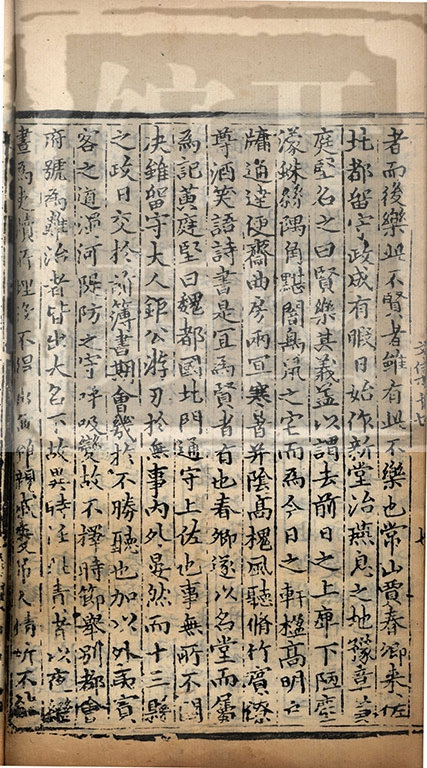 者而後樂此不賢者雖有此不樂也常山賈春卿來佐
北都留守政成有暇日始作新堂治燕息之地豫章黃
庭堅名之曰賢樂其義蓋以謂去前日之上庳下陋塵
濛蛛絲隅角黮闇鳥鼠之宅而為今日之軒楹高明戶
牖通達便齋曲房兩宜寒暑幷陰高槐風聽脩竹賓僚
尊酒笑語詩書是宜為賢者有也春卿遂以名堂而屬
為記黃庭堅曰魏都國北門通守上佐也事無所不關
决雖留守大人鉅公游刃於無事內外晏然而十三縣
之政日交於前簿書期會幾於不勝聽也加以外夷賓
客之道漳河隄防之守呼吸變故不擇時節舉別都會
府號為難治者皆出大名下故異時汪
晝為